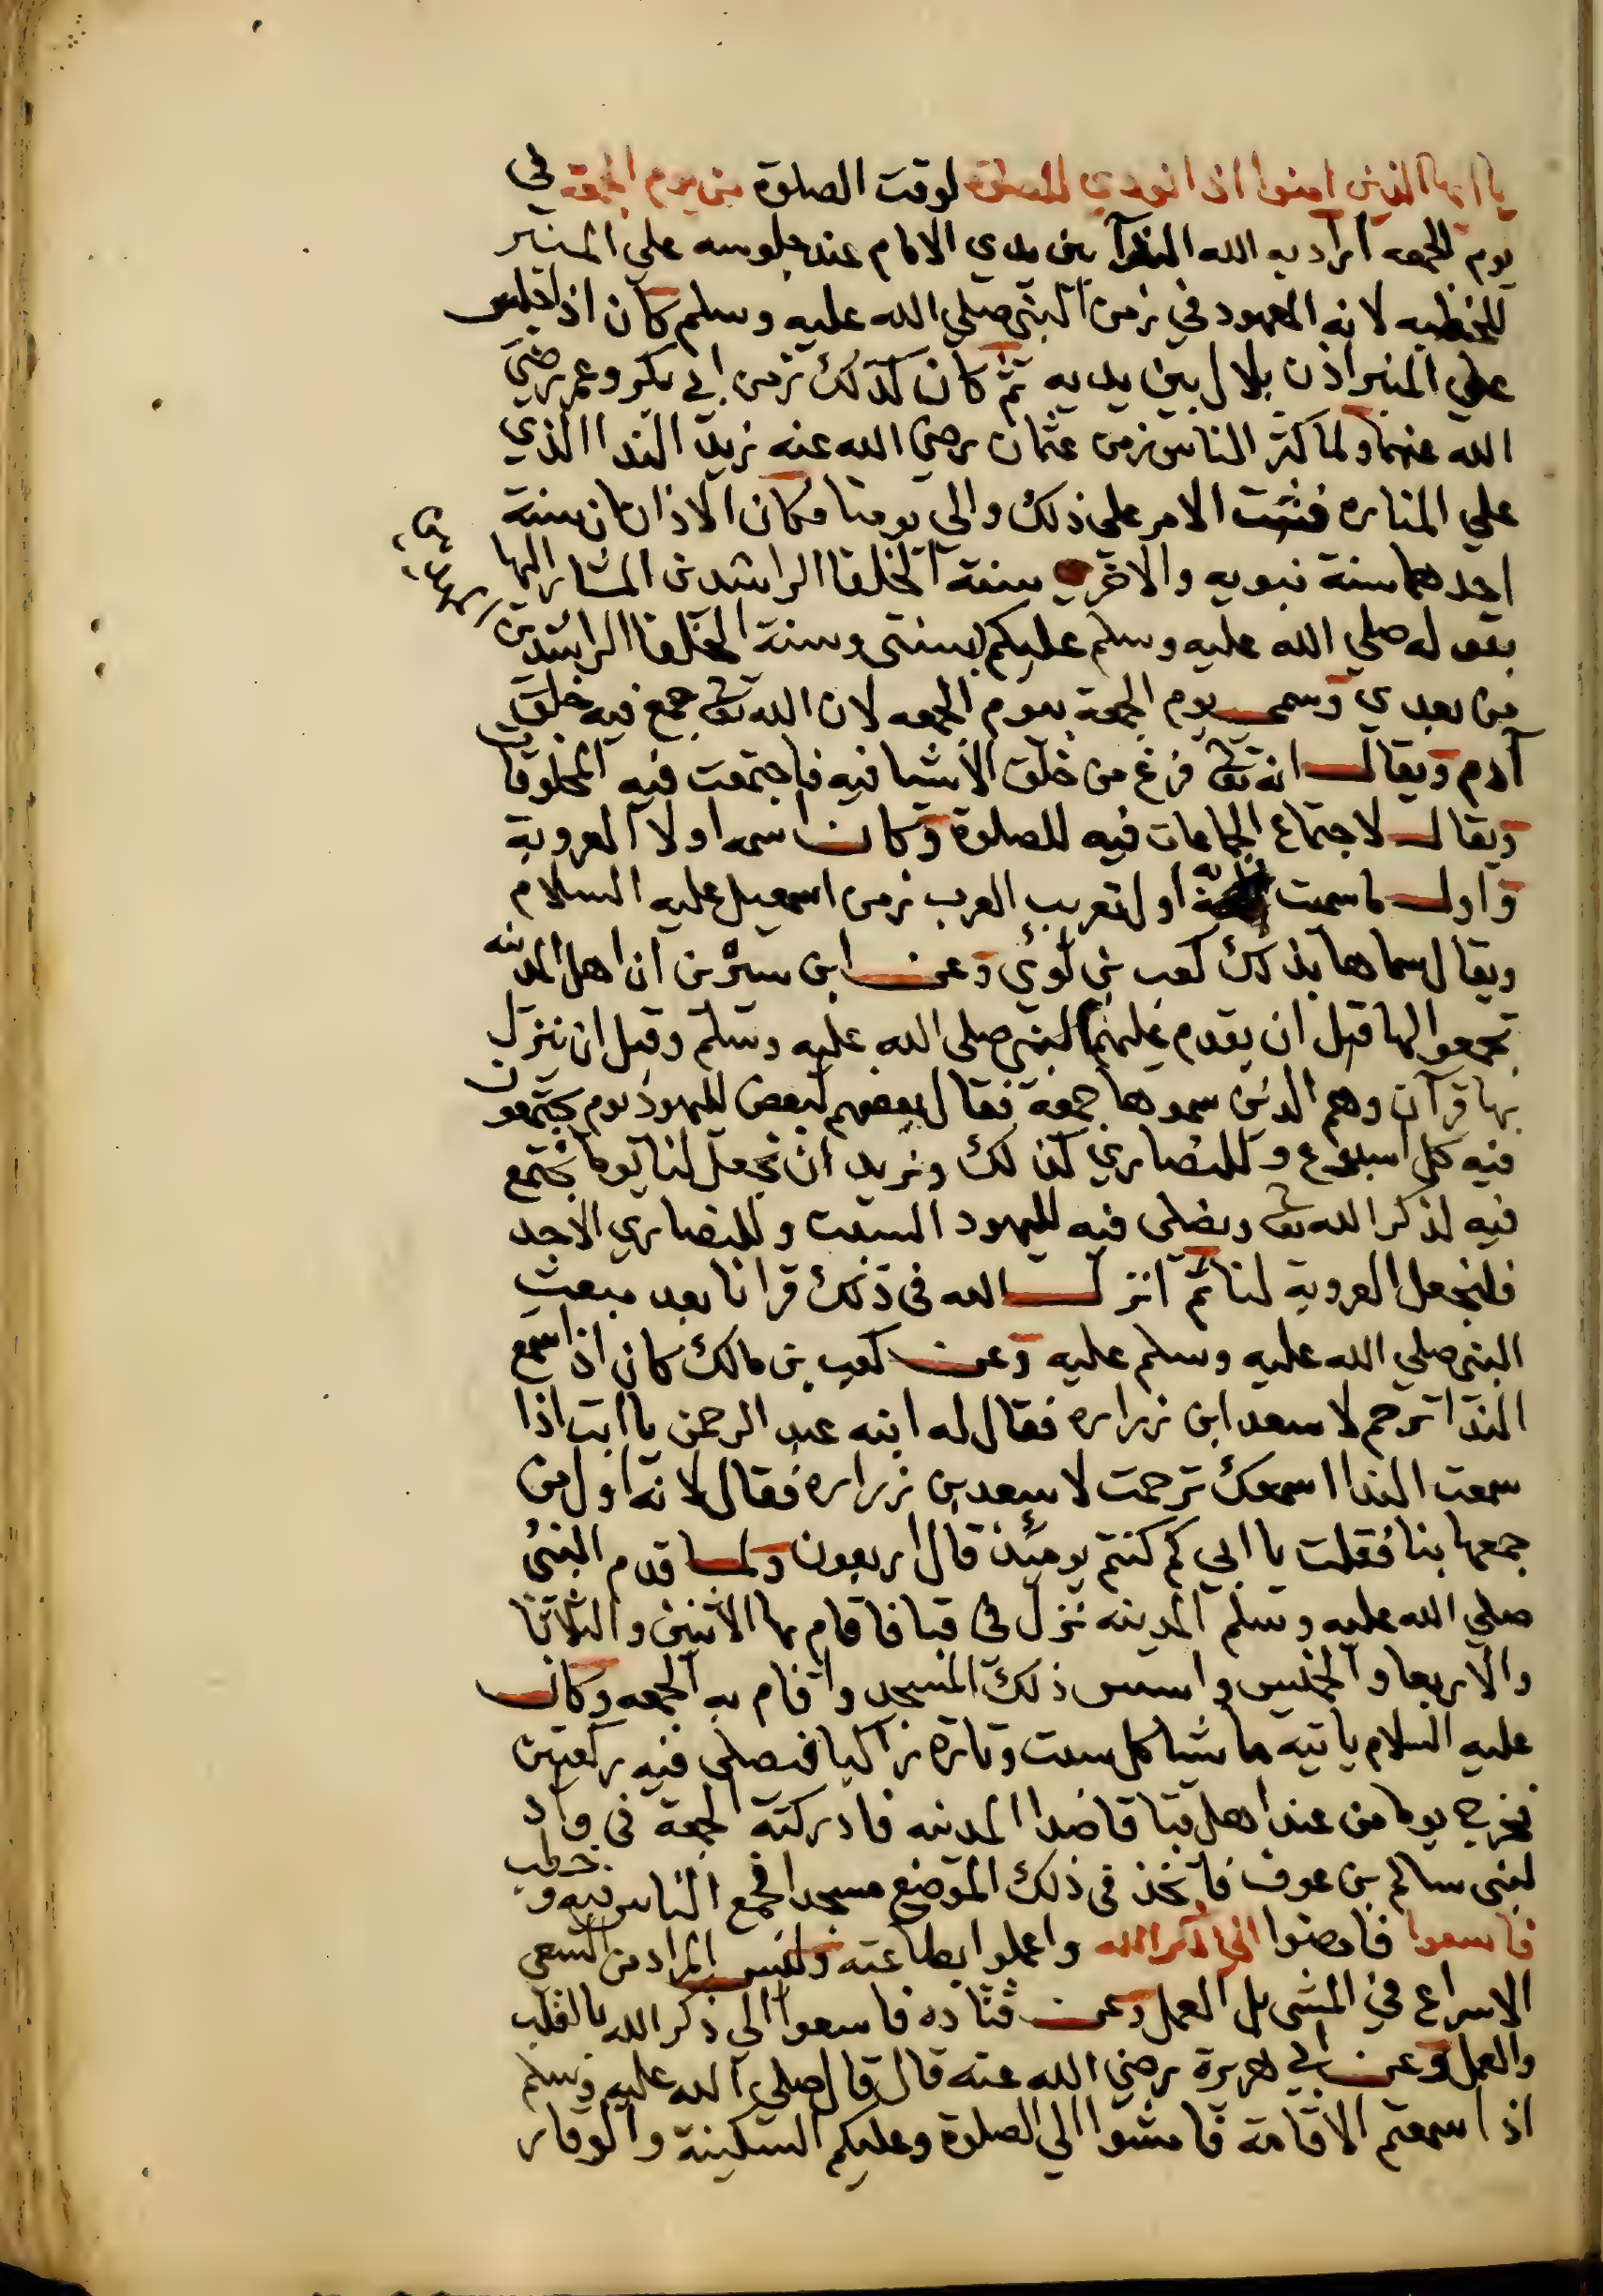 يا ايها الذين امنوا اذا نودي للصلوة لوقت الصلوة من يوم الجمعة في
يوم الجمعه اراد به الله الندآ بين يدي الامام عند جلوسه علي المنبر
للخطبه لانه المعهود في زمن النبي صلي الله عليه وسلم كان اذا جلس
علي المنبر اذن بلال بين يديه ثم كان كذلك زمن ابي بكر وعمر رضي
الله عنهما ولما كثر الناس زمن عثمان رضي الله عنه زيد الندا الذي
علي المناره فثبت الامر علي ذلك والي يومنا فكان الاذانان سنة
احدهما سنة نبويه والاخري سنة الخلفا الراشدين المشار اليها
بقوله صلي الله عليه وسلم عليكم بسنتي وسنة الخلفا الراشدين
من بعدي وسمي يوم الجمعة بيوم الجمعه لان الله تعالى جمع فيه خلق
آدم ويقال انه تعالى فرغ من خلق الاشيا فيه فاجتمعت فيه المخلوقات
ويقال لاجتماع الجماعات فيه للصلوة وكان اسمه اولا العروبة
واول ما سميت اول تعريب العرب زمن اسمعيل عليه السلام
ويقال سماها بذلك كعب بن لؤي وعن ابن سيرين ان اهل المدينه
تجمعوا لها قبل ان يقدم عليهم النبي صلي الله عليه وسلم وقبل ان ينزل
بها قرآن وهم الذين سموها جمعة فقال بعضهم لبعض لليهود يوم يجتمعون
فيه كل اسبوع وللنصاري كذلك ونريد ان نجعل لنا يوما نجتمع
فيه لذكر الله تعالى ونصلي فيه لليهود السبت وللنصاري الاحد
فلنجعل العروبة لنا ثم انزل الله في ذلك قرانا بعد مبعث
النبي صلي الله عليه وسلم عليه وعن كعب بن مالك كان اذا سمع
الندا ترحم لاسعد ابن زراره فقال له ابنه عبد الرحمن يا ابت اذا
سمعت الندا اسمعك ترحمت لاسعد بن زراره فقال لانه اول من
جمعها بنا فقلت يا ابي كم كنتم يومئذ قال اربعون ولما قدم النبي
صلي الله عليه وسلم المدينه نزل في قبا فاقام بها الاثنين والثلاثا
والاربعا والخميس واسس ذلك المسجد واقام به الجمعه وكان
عليه السلام ياتيه ماشيا كل سبت وتارة راكبا فيصلي فيه ركعتين
فخرج يوما من عند اهل قبا قاصدا المدينه فادركته الجمعة في واد
لبني سالم بن عوف فاتخذ في ذلك الموضع مسجدا فجمع الناس فيه وخطب
فاسعوا فامضوا الي ذكر الله واعملوا بطاعته وليس المراد من السعي
الاسراع في المشي بل العمل وعن قتاده فاسعوا الي ذكر الله بالقلب
والعمل وعن ابي هريرة رضي الله عنه قال قال صلي الله عليه وسلم
اذا سمعتم الاقامة فامشوا الي الصلوة وعليكم السكينة والوقار